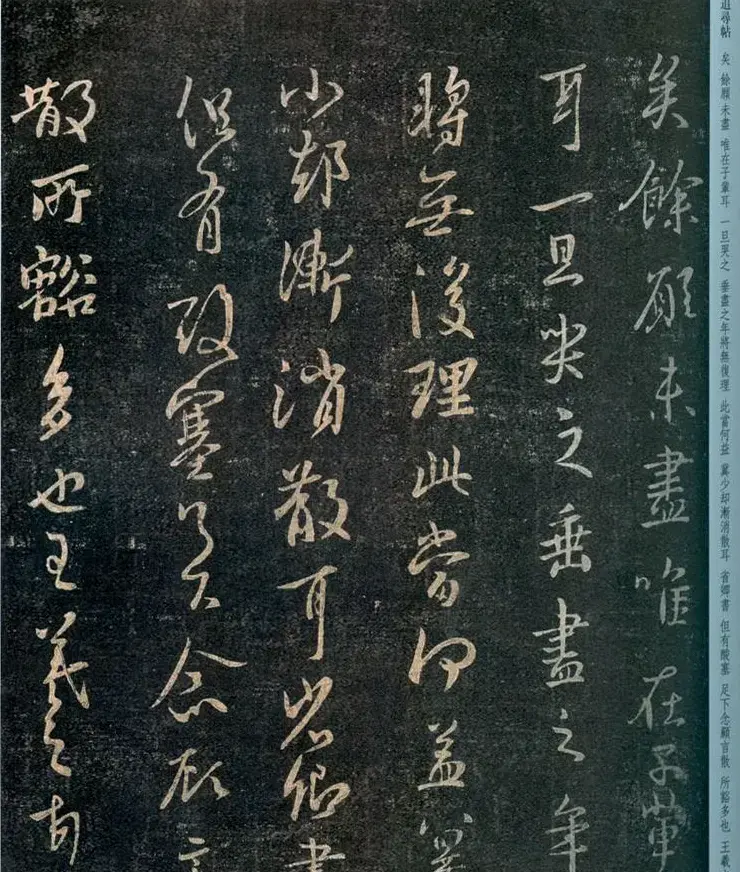 追尋帖 矣 餘願未盡 唯在子輩耳 一旦哭之 垂盡之年將無復理 此當何益 冀少却漸消散耳 省卿書 但有酸塞 足下念顧言散 所豁多也 王羲
矣餘願未盡唯在子輩
耳一旦哭之垂盡之年
將無復理此當何益冀
小却漸消散耳省卿書
但有酸塞足下念顧言
散所豁多也王羲之頓